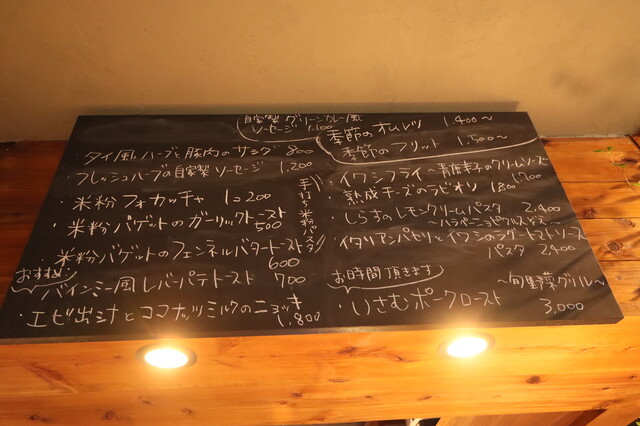 自家製 グリーンカレー風
ソーセージ 1,100
・タイ風ハーブと豚肉のサラダ 800
・フレッシュハーブの自家製ソーセージ 1,200
・米粉フォカッチャ 1コ200
・米粉バゲットのガーリックトースト
500
・米粉バゲットのフェンネルバタートースト
600
手作り米粉パン
おすすめ
バインミー風レバーパテトースト 700
・エビ出汁とココナッツミルクのニョッキ
1,800
季節のオムレツ 1,400〜
季節のフリット 1,500〜
・イワシフライ〜青唐辛子のクリームソース〜
1,700
・熟成チーズのラビオリ 1800
・しらすのレモンクリームパスタ 2,400
〜ハラペーニョピクルス
・イタリアンパセリとイワシのラグートマトソース
パスタ 2,400
お時間頂きます
〜旬野菜グリル〜
・いさむポークロースト 3,000